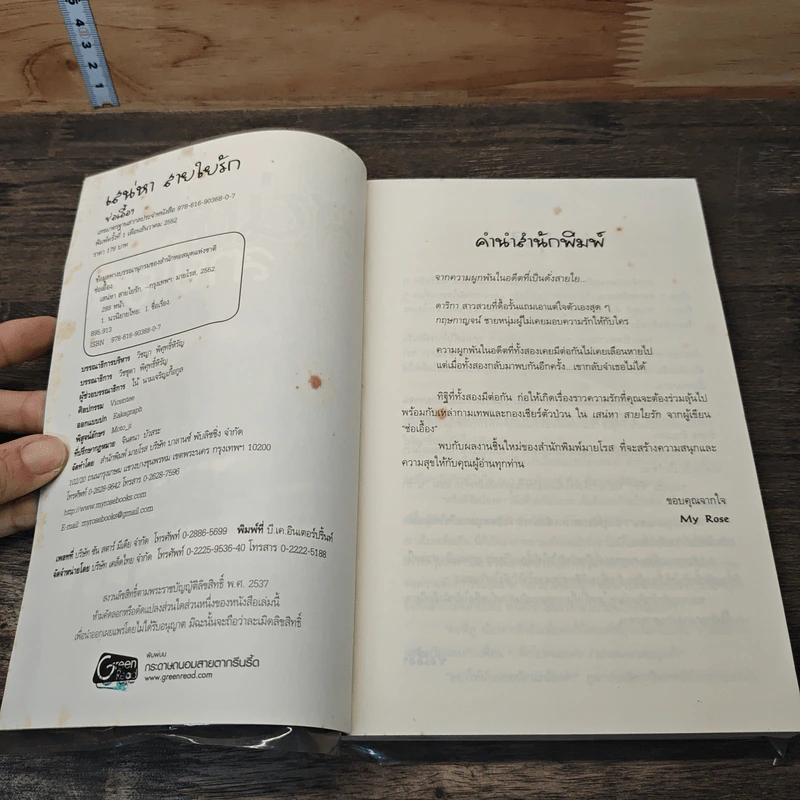 5 4 3 2 1
เสน่หา สายใยรัก
ช่อเอื้อง
เลขมาตรฐานสากลประจำหนังสือ 978-616-90368-0-7
พิมพ์ครั้งที่ 1 เดือนธันวาคม 2552
ราคา 179 บาท
ข้อมูลทางบรรณานุกรมของสำนักหอสมุดแห่งชาติ
ช่อเอื้อง.
เสน่หา สายใยรัก.--กรุงเทพฯ: มายโรส, 2552.
288 หน้า.
1. นวนิยายไทย. I. ชื่อเรื่อง.
895.913
ISBN 978-616-90368-0-7
บรรณาธิการบริหาร วิชญา พิศุทธิ์หิรัญ
บรรณาธิการ วิชชุดา พิศุทธิ์หิรัญ
ผู้ช่วยบรรณาธิการ โน้
ศิลปกรรม
ออกแบบปก Eakagraph
พิสูจน์อักษร Moto_ji
ที่ปรึกษากฎหมาย จินตนา บัวสระ
จัดทำโดย สำนักพิมพ์ มายโรส บริษัท บาลานซ์ พับลิชชิ่ง จำกัด
102/20 ถนนกรุงเกษม แขวงบางขุนพรหม เขตพระนคร กรุงเทพฯ 10200
โทรศัพท์ 0-2628-9642 โทรสาร 0-2628-7596
http://www.myrosebooks.com
E-mail: myrosebooks@gmail.com
เพลทที่ บริษัท ซัน สตาร์ มีเดีย จำกัด โทรศัพท์ 0-2886-5699 พิมพ์ที่ บี.เค.อินเตอร์ปริ้นท์
จัดจำหน่ายโดย บริษัท เคล็ดไทย จำกัด โทรศัพท์ 0-2225-9536-40 โทรสาร 0-2222-5188
สงวนลิขสิทธิ์ตามพระราชบัญญัติลิขสิทธิ์ พ.ศ. 2537
ห้ามคัดลอกหรือดัดแปลงส่วนใดส่วนหนึ่งของหนังสือเล่มนี้
เพื่อนำออกเผยแพร่โดยไม่ได้รับอนุญาต มิฉะนั้นจะถือว่าละเมิดลิขสิทธิ์
Green Read
พิมพ์บน
กระดาษถนอมสายตากรีนรี้ด
www.greenread.com
คำนำสำนักพิมพ์
จากความผูกพันในอดีตที่เป็นดั่งสายใย...
ดาริกา สาวสวยที่ดื้อรั้นแถมเอาแต่ใจตัวเองสุด ๆ
กฤษกาญจน์ ชายหนุ่มผู้ไม่เคยมอบความรักให้กับใคร
ความผูกพันในอดีตที่ทั้งสองเคยมีต่อกันไม่เคยเลือนหายไป
แต่เมื่อทั้งสองกลับมาพบกันอีกครั้ง...เขากลับจำเธอไม่ได้
ทิฐิที่ทั้งสองมีต่อกัน ก่อให้เกิดเรื่องราวความรักที่คุณจะต้องร่วมลุ้นไป
พร้อมกับเหล่ากามเทพและกองเชียร์ตัวป่วน ใน เสน่หา สายใยรัก จากผู้เขียน
"ช่อเอื้อง"
พบกับผลงานชิ้นใหม่ของสำนักพิมพ์มายโรส ที่จะสร้างความสนุกและ
ความสุขให้กับคุณผู้อ่านทุกท่าน
ขอบคุณจากใจ
My Rose